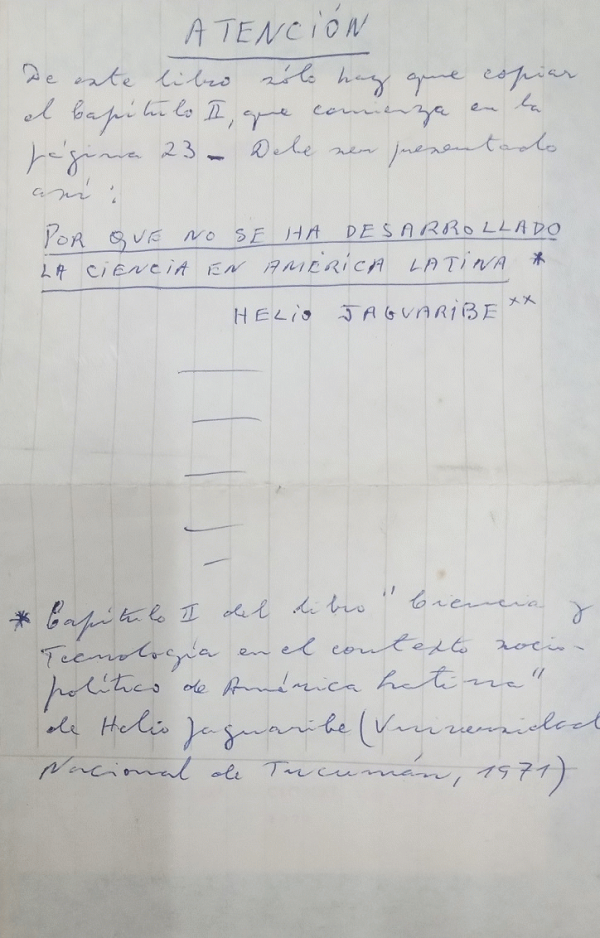 ATENCIÓN
De este libro sólo hay que copiar
el Capítulo II, que comienza en la
página 23 - Debe ser presentado
así:
POR QUE NO SE HA DESARROLLADO
LA CIENCIA EN AMÉRICA LATINA *
HELIO JAGUARIBE **
* Capítulo II del libro "Ciencia y
Tecnología en el contexto socio-
político de América Latina"
de Helio Jaguaribe (Universidad
Nacional de Tucumán, 1971)